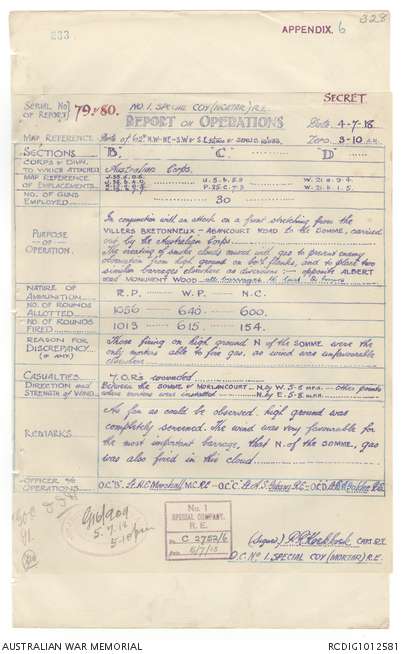 328
APPENDIX. 6
233
SECRET
SERIAL NO OF REPORT 79 & 80. NO. 1. SPECIAL COY (MORTAR) R.E.
REPORT ON OPERATIONS
Date 4-7-18
Zero 3-10 A.M.
MAP REFERENCE
SECTIONS "B" "C" "D"
CORPS & DIVN. TO WHICH ATTACHED Australian Corps.
MAP REFERENCE OF EMPLACEMENTS
NO. OF GUNS EMPLOYED 30
PURPOSE OF OPERATION.
In conjunction with an attack on a front stretching from the
VILLERS BRETONNEUX - ABANCOURT ROAD to the SOMME, carried
out by the Australian Corps.
The creating of smoke clouds mixed with gas to prevent enemy
observation from high ground on left flanks, and to place two
similar barrages elsewhere as diversions :- opposite ALBERT
and MONUMENT WOOD
NATURE OF AMMUNITION R.P. W.P. N.C.
NO. OF ROUNDS ALLOTTED 1056 640 600
NO. OF ROUNDS FIRED 1013 615 154
REASON FOR DISCREPANCY (IF ANY)
Those firing on high ground N of the SOMME were the
only mortars able to fire gas, as wind was unfavourable
elsewhere
CASUALTIES 7. O.R's wounded
DIRECTION AND STRENGTH OF WIND
Between the SOMME & MORLANCOURT - N by W. 5-8 MPH - other points
where mortars were installed - N by E. 5-8 M.P.H.
REMARKS
As far as could be observed high ground was
completely screened. The wind was very favourable for
the most important barrage, that N. of the SOMME, gas
was also fired in this cloud
OFFICER i/c OPERATIONS O.C. 'B' Lt. H.C. Marshall M.C. R.E - O.C. 'C' R.E - O.C. 'D' R.E.
5.7.18
5-18 pm
No. 1
SPECIAL COMPANY,
R.E.
No. C 2752/6
Date 5/7/18
(Signed) CAPT. R.E.
O.C. NO 1. SPECIAL COY (MORTAR) R.E.
AUSTRALIAN WAR MEMORIAL
RCDIG1012581